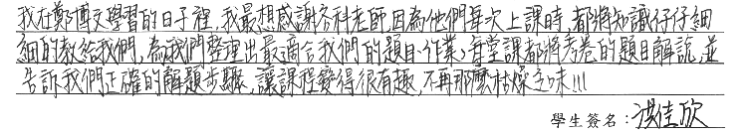 我在鄭博文學習的日子裡,我最想感謝各科老師,因為他們每次上課時,都將知識仔仔細
細的教給我們,為我們整理出最適合我們的題目、作業,每堂課都將考卷的題目解說,並
告訴我們正確的解題步驟,讓課程變得很有趣,不再那麼枯燥乏味!!!
學生簽名:洪佳欣